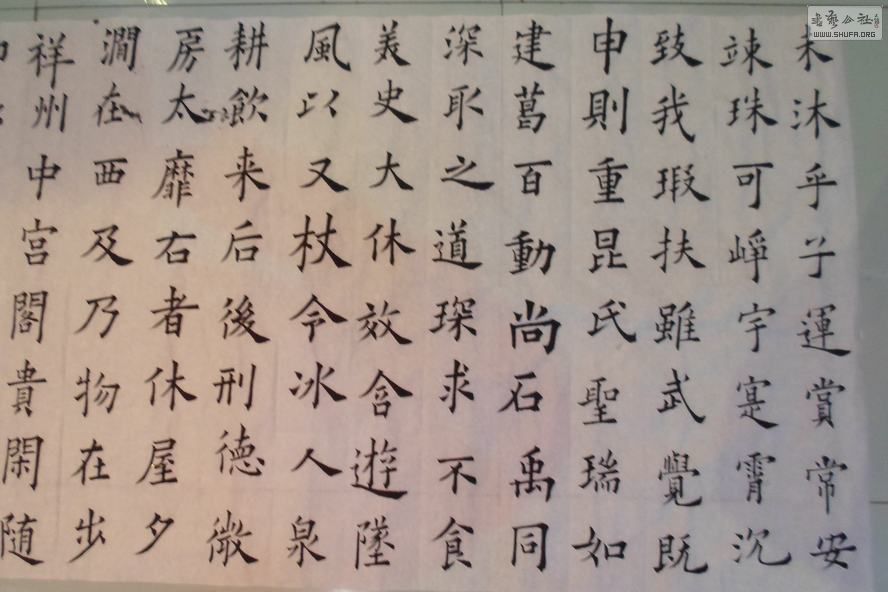 未沐乎子運賞常安
竦珠可崢宇寔霄沉
致我瑕扶雖武覺既
申則重昆氏聖瑞如
建葛百動尚石禹同
深取之道琛求不食
美史大休效含遊墜
風以又杖令冰人泉
耕飲来后後刑德微
房太靡右者休屋夕
澗在西及乃物在步
祥州中宫閣貴閑随
書藝公社
WWW.SHUFA.ORG